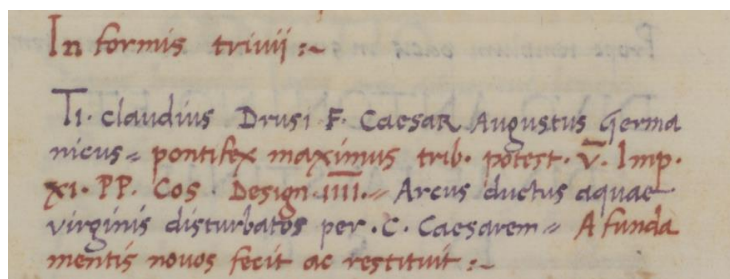 In formis trivii :~
Ti. Claudius Drusi F. Caesar Augustus Germa
nicus = pontifex maximus trib. potest. V̅. Imp.
XI. PP. Cos Design. I̅I̅I̅I̅. = Arcus ductus aquae
virginis disturbatos per .C. Caesarem = A funda
mentis novos fecit ac restituit :~